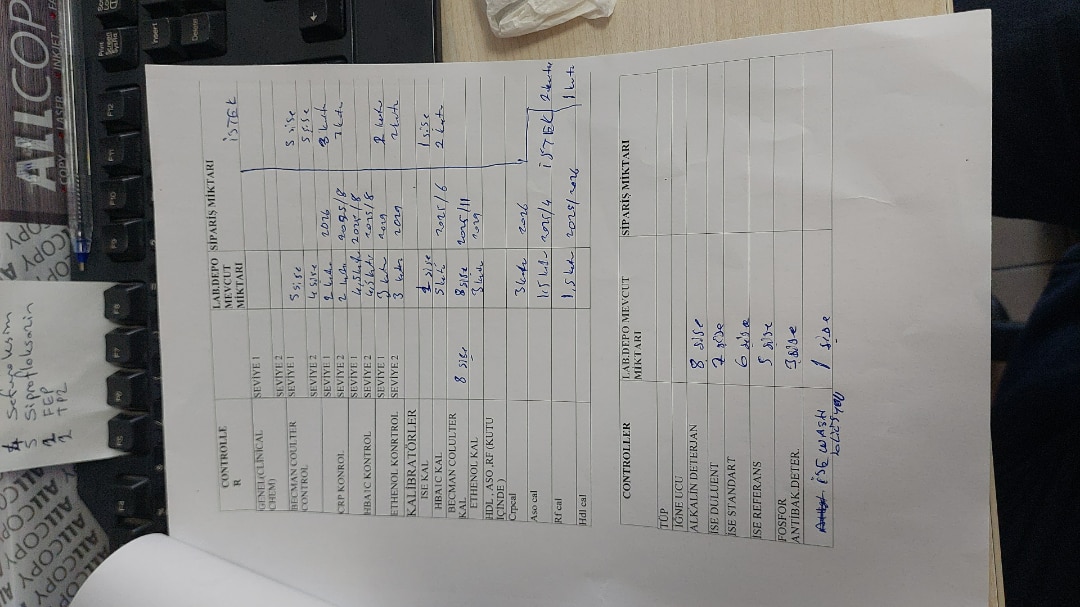 CONTROLLE R LAB.DEPO MEVCUT MİKTARI SİPARİŞ MİKTARI İSTEK
GENEL(CLİNİCAL CHEM) SEVİYE 1
SEVİYE 2
BECMAN COULTER CONTROL SEVİYE 1 5 şişe 5 şişe
SEVİYE 2 4 şişe 5 şişe
CRP KONROL SEVİYE 1 2 kutu 2026 3 kutu
SEVİYE 2 2 kutu 2025/8 3 kutu
HBA1C KONTROL SEVİYE 1 4,5 kutu 2025/8
SEVİYE 2 4,5 kutu 2025/8
ETHENOL KONRTROL SEVİYE 1 3 kutu 2029 2 kutu
SEVİYE 2 3 kutu 2029 2 kutu
KALİBRATÖRLER
ISE KAL 1 şişe 1 şişe
HBA1C KAL 5 kutu 2025/6 2 kutu
BECMAN COLULTER KAL 8 şişe 8 şişe 2025/11
ETHENOL KAL 3 kutu 2029
HDL, ASO ,RF (KUTU İÇİNDE )
Crpcal 3 kutu 2026
Aso cal
Rf cal 1,5 kutu 2025/4 İSTEK 2 kutu
Hdl cal 1,5 kutu 2025/2026 1 kutu
CONTROLLER LAB.DEPO MEVCUT MİKTARI SİPARİŞ MİKTARI
TÜP
İĞNE UCU
ALKALIN DETERJAN 8 şişe
İSE DULUENT 7 şişe
İSE STANDART 6 şişe
İSE REFERANS 5 şişe
FOSFOR
ANTİBAK DETER. 3 şişe
İSE WASH 1 şişe
4 Sefuroksim
5 Siprofloksasin
2 FEP
2 TP2
ALLCOP
COPY LASER INKJET
ALLCOPY
ALLCOPY
ALLCOPY
Print Screen SysRq
Insert
Delete
F12
F10
F9
F8
F7
F6
F5
F4